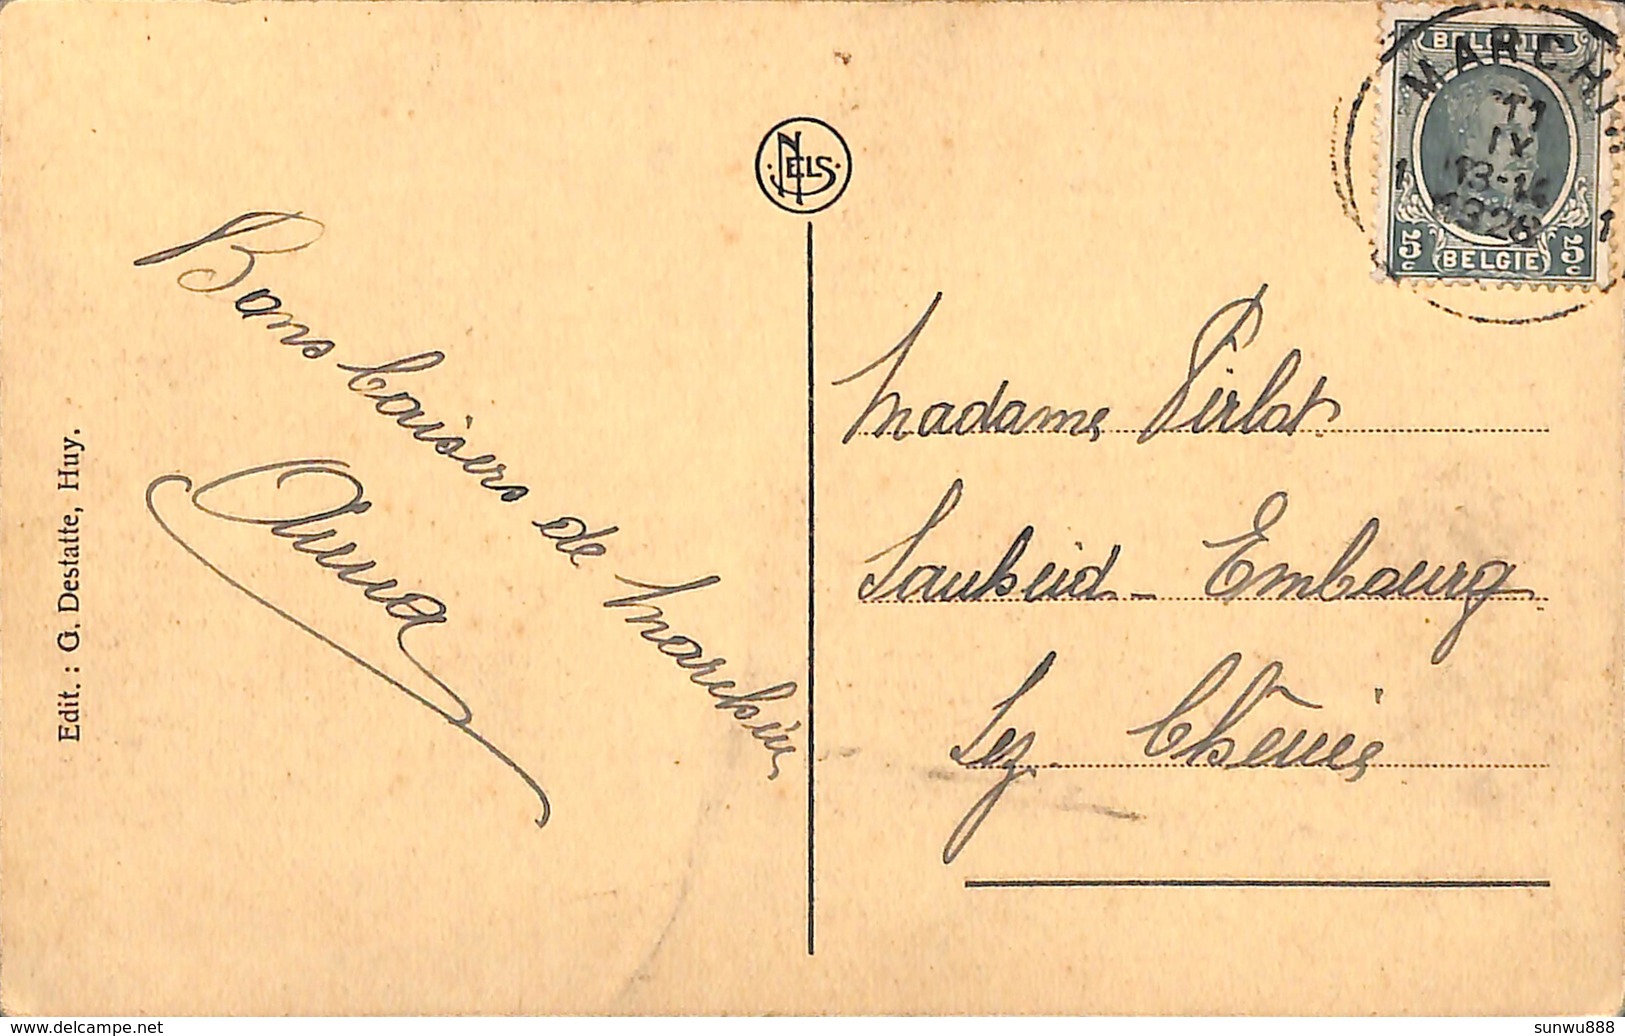 Bons baisers de Marchin
Anna
Edit. : G. Destatte, Huy.
NELS
Madame Pirlot
Sauheid - Embourg
Lez Chênée
MARCHIN
11
IX
13-14
1926
1 1
BELGIE
5c 5c